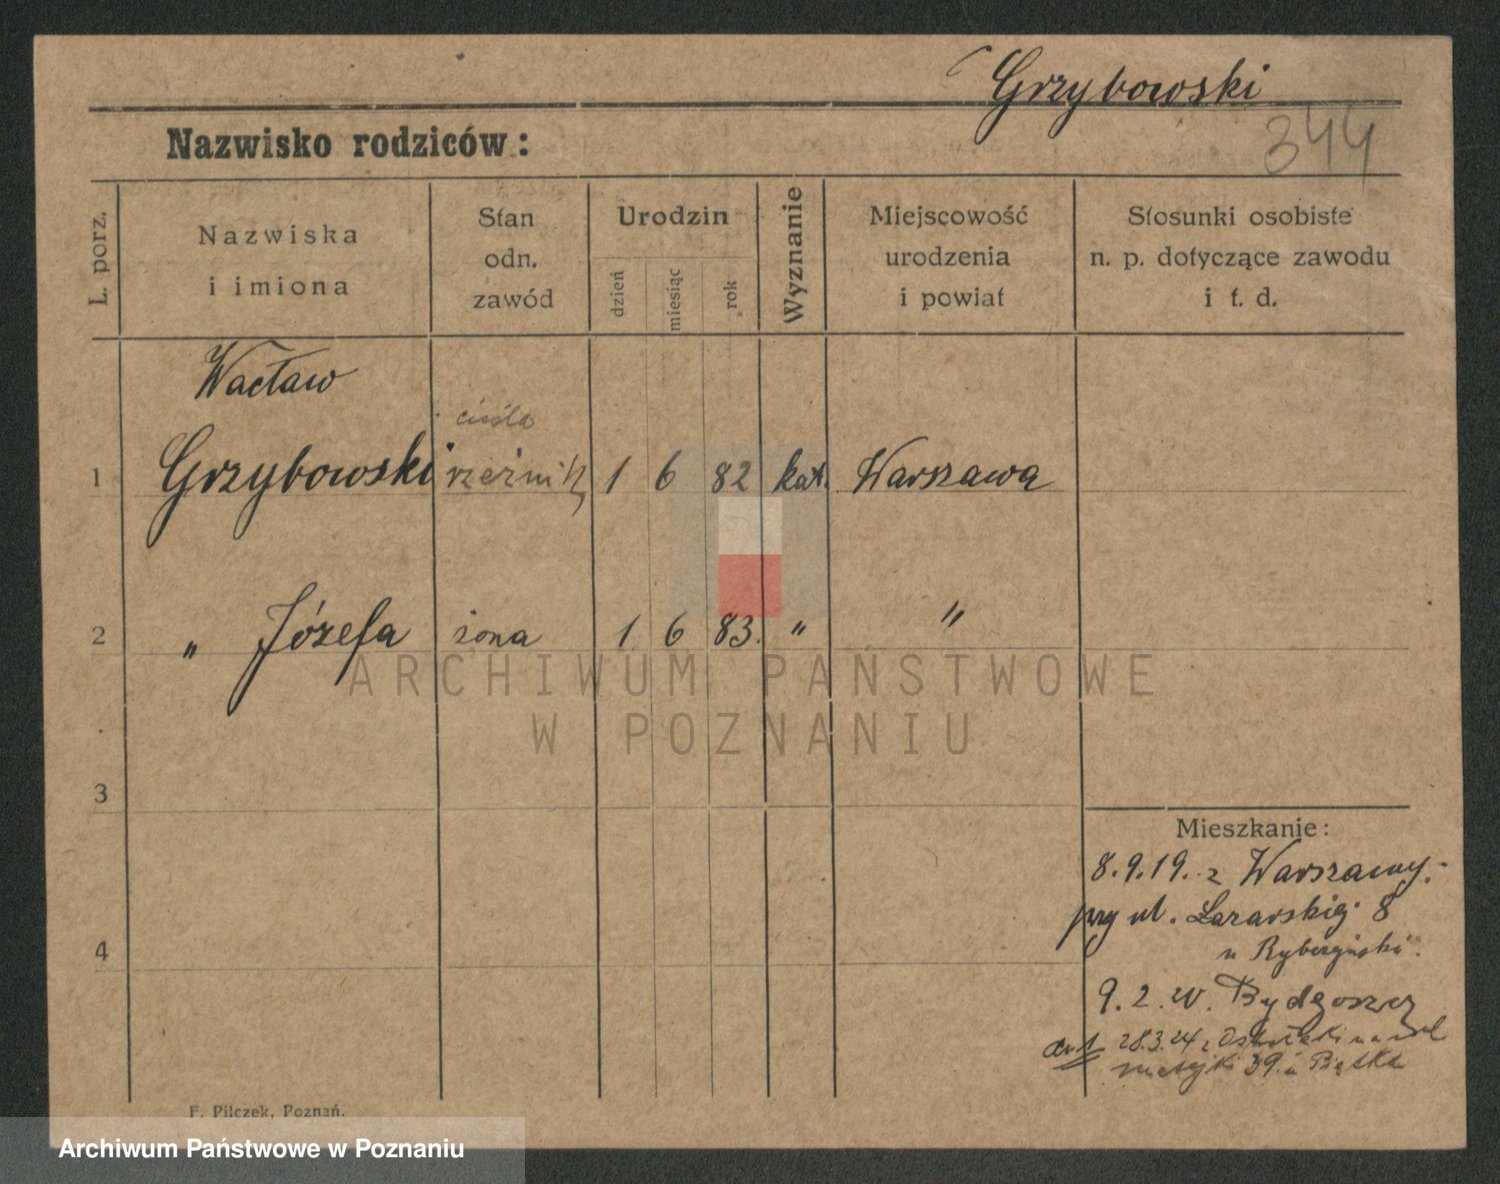 Grzybowski
344
Nazwisko rodziców:
L. porz.
Nazwiska
i imiona
Stan
odn.
zawód
Urodzin
dzień
miesiąc
rok
Wyznanie
Miejscowość
urodzenia
i powiat
Stosunki osobiste
n. p. dotyczące zawodu
i t. d.
Wacław
cieśla
1 Grzybowski rzeźnik 1 6 82 kat. Warszawa
2 " Józefa żona 1 6 83. " "
ARCHIWUM PAŃSTWOWE
W POZNANIU
3
Mieszkanie:
8.9.19. z Warszawy.
przy ul. 8
4
u
9.2.20. Bydgoszcz
28.3.24 z
39. u
F. Pilczek, Poznań.
Archiwum Państwowe w Poznaniu